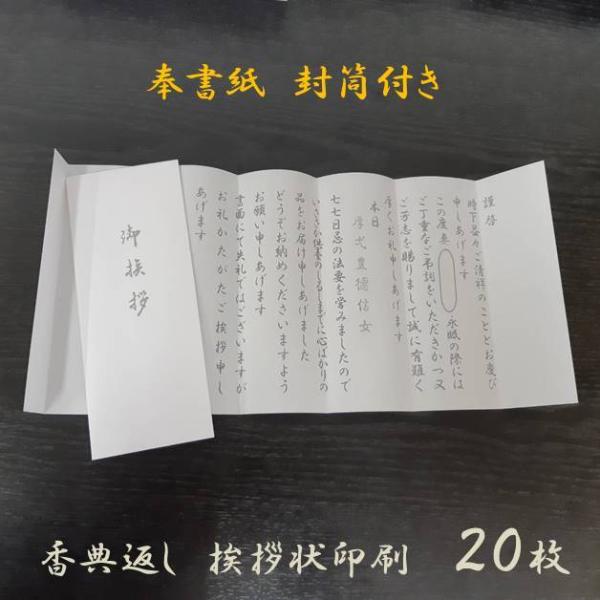 奉書紙 封筒付き
御挨拶
謹啓
時下益々ご清祥のこととお慶び
申しあげます
この度亡 永眠の際には
ご丁重なご弔詞をいただきかつ又
ご芳志を賜りまして誠に有難く
厚くお礼申しあげます
本日
豊徳信女
七七日忌の法要を営みましたので
いささか供養のしるしまでに心ばかりの
品をお届け申しあげました
どうぞお納めくださいますよう
お願い申しあげます
書面にて失礼ではございますが
お礼かたがたご挨拶申し
あげます
香典返し 挨拶状印刷 20枚